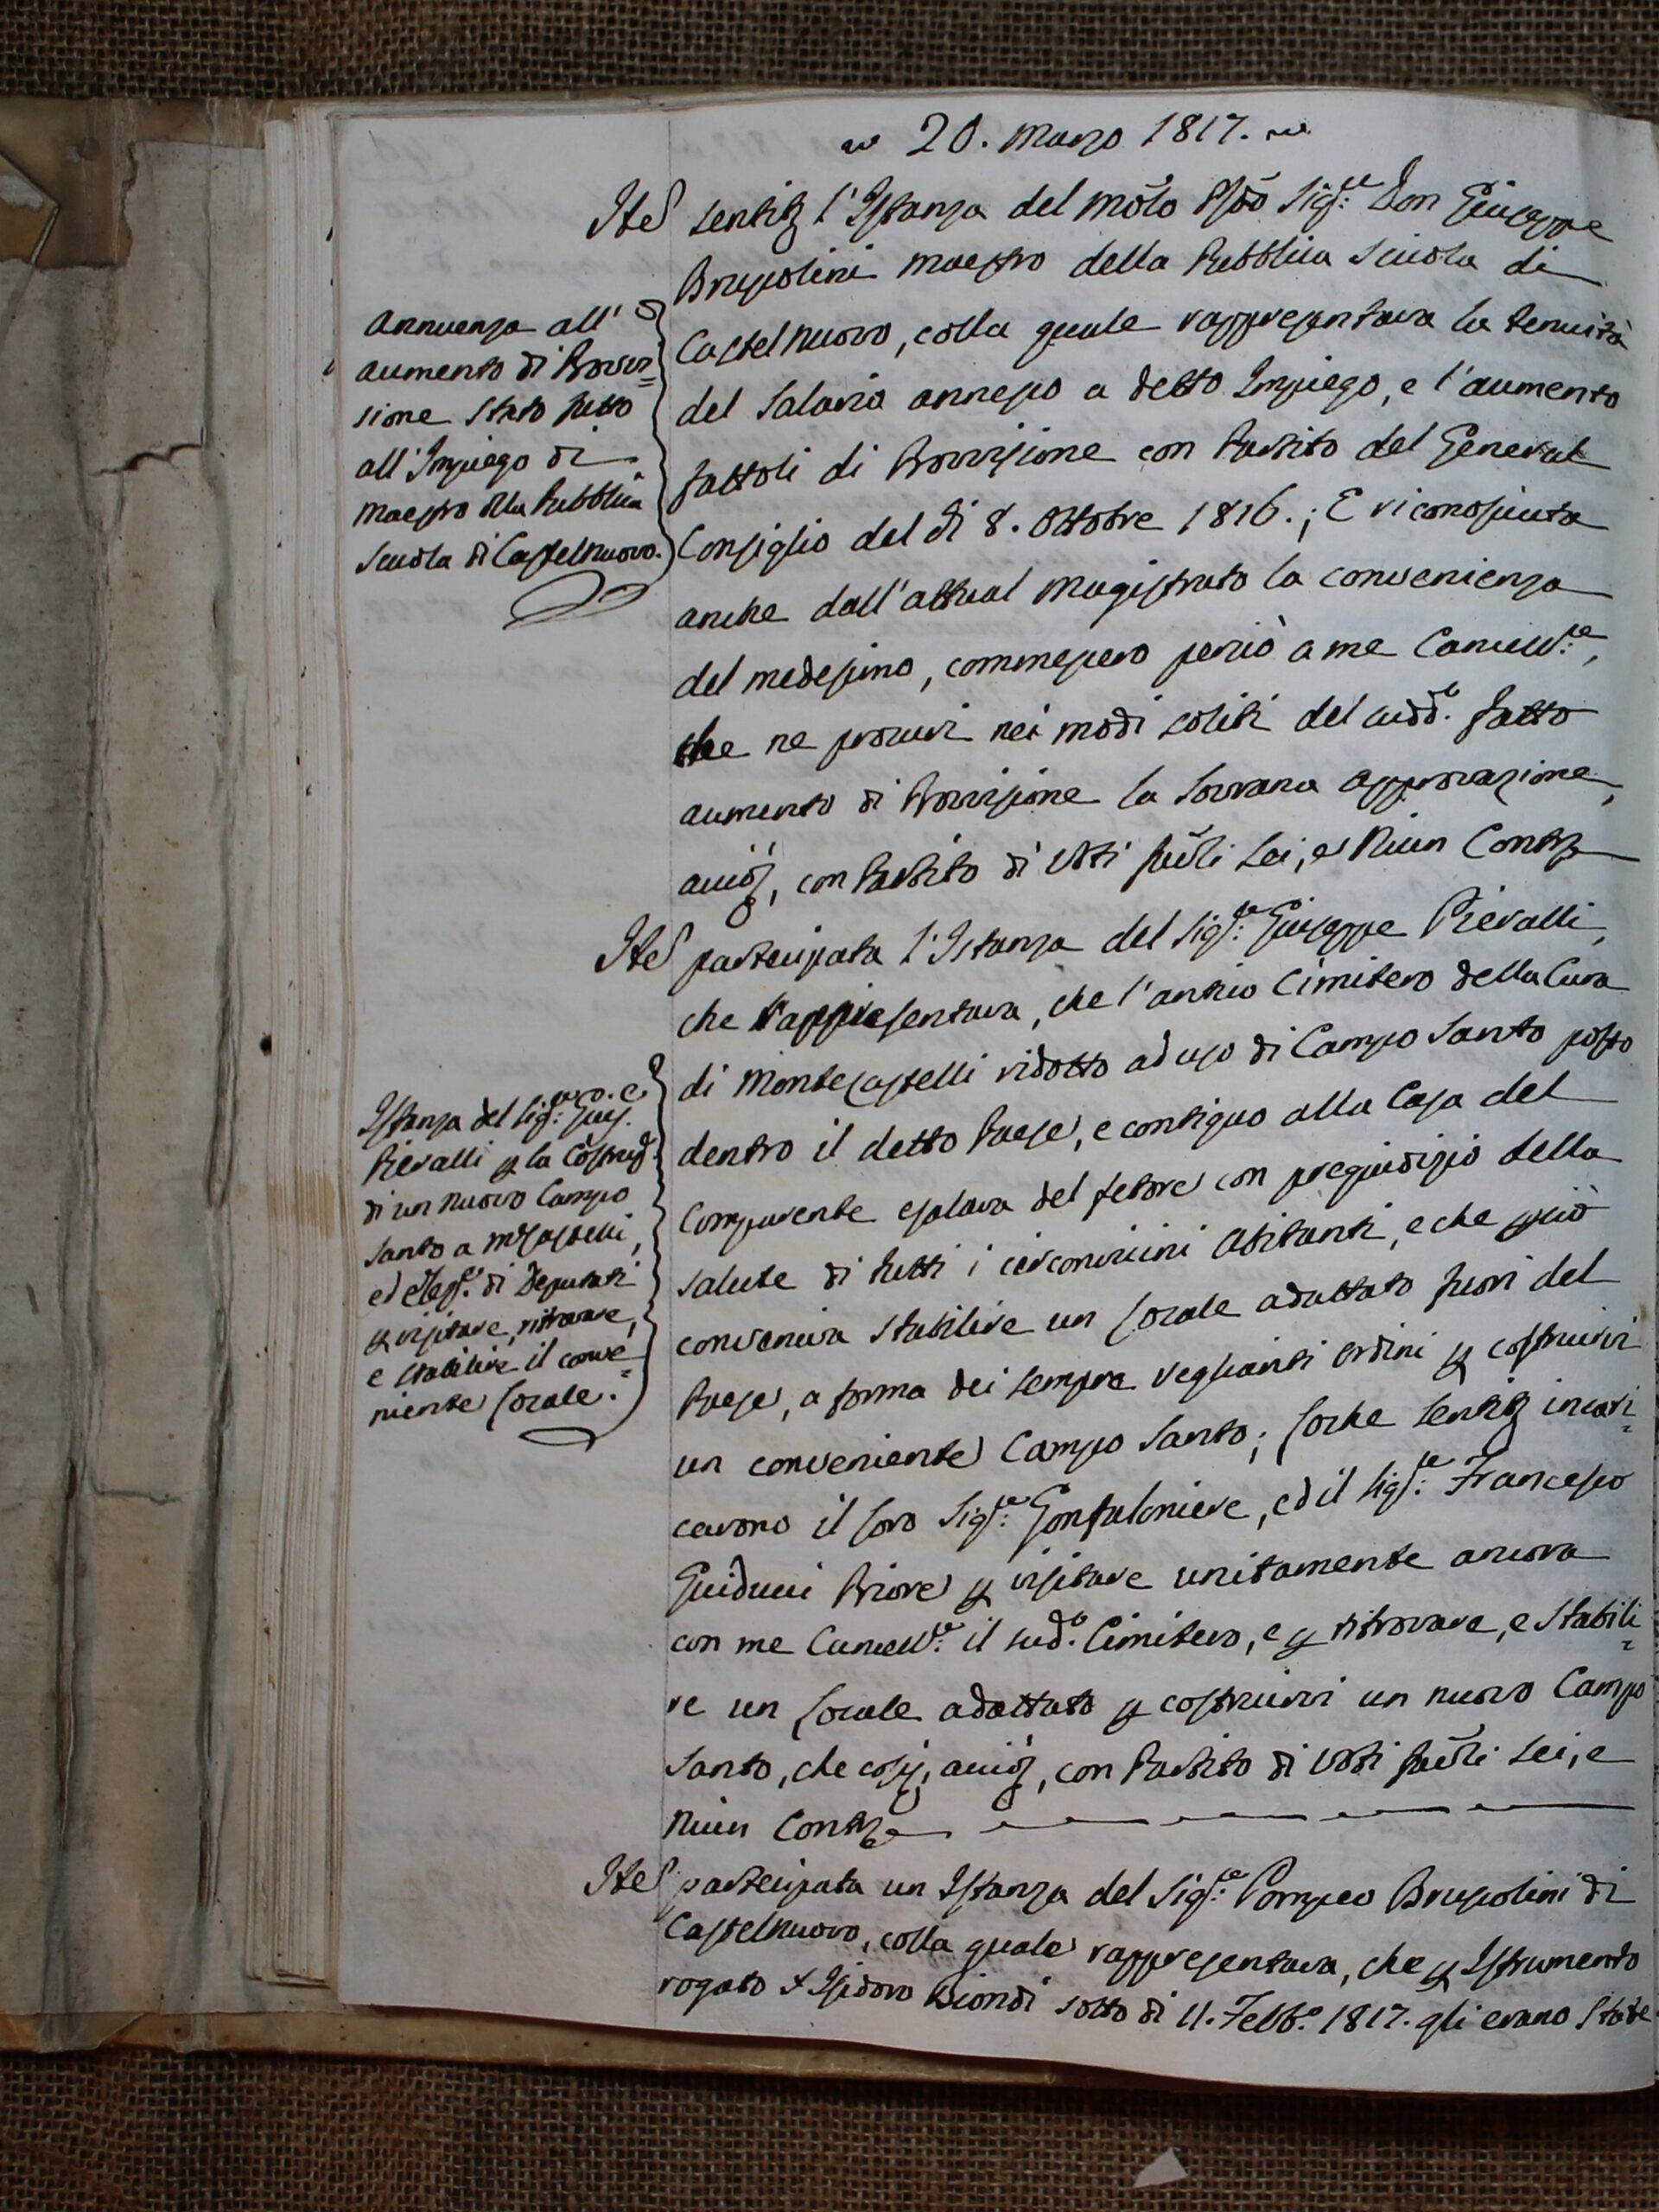 20. Marzo 1817.
Annuenza all'
aumento di Provvi=
sione stato fatto
all'Impiego di
Maestro della Pubblica
Scuola di Castelnuovo.
Ite sentita l'Istanza del Molto Sig.re Don Giuseppe
Bruscolini Maestro della Pubblica Scuola di
Castelnuovo, colla quale rappresentava la tenuità
del Salario annesso a detto Impiego, e l'aumento
fattoli di Provvisione con Partito del General
Consiglio del dì 8. Ottobre 1816.; E riconosciuta
anche dall'attual Magistrato la convenienza
del medesimo, commessero perciò a me Cancell.re,
che ne procuri nei modi soliti del sudd.o fatto
aumento di Provvisione la Sovrana approvazione,
con Partito di Voti fav.li Sei, e Niun Contr.
Istanza del Sig.re Gius.e
Pievalli p la Costruz.
di un nuovo Campo
Santo a M.Castelli,
ed Elez. di Deputati
p visitare, ritrovare,
e stabilire il conve=
niente Locale.
Ite partecipata l'Istanza del Sig.re Giuseppe Pievalli,
che rappresentava, che l'antico Cimitero della Cura
di Montecastelli ridotto ad uso di Campo Santo posto
dentro il detto Paese, e contiguo alla Casa del
Comparente esalava del fetore con pregiudizio della
salute di tutti i circonvicini Abitanti, e che p ciò
conveniva stabilire un Locale adattato fuori del
Paese, a forma dei sempre veglianti Ordini p costruirvi
un conveniente Campo Santo; Loche sentito incari=
carono il loro Sig.re Gonfaloniere, ed il Sig.re Francesco
Guiducci Priore p visitare unitamente ancora
con me Cancell.re il sud.o Cimitero, e p ritrovare, e stabili=
re un Locale adattato p costruirvi un nuovo Campo
Santo, che così, con Partito di Voti fav.li Sei, e
Niun Contr.
Ite partecipata un Istanza del Sig.re Pompeo Bruscolini di
Castelnuovo, colla quale rappresentava, che p Istrumento
rogato Isidoro Biondi sotto dì 11. Febb.o 1817. gli erano State